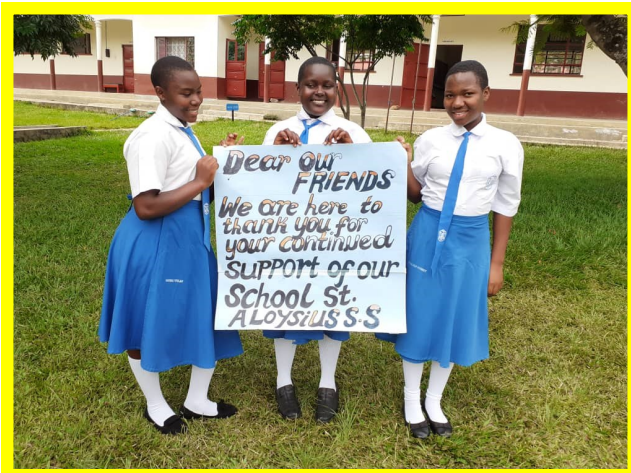 Dear Our
FRIENDS
We are here to
thank you for
your continued
SUPPORT of our
School St.
ALOYSIUS S.S